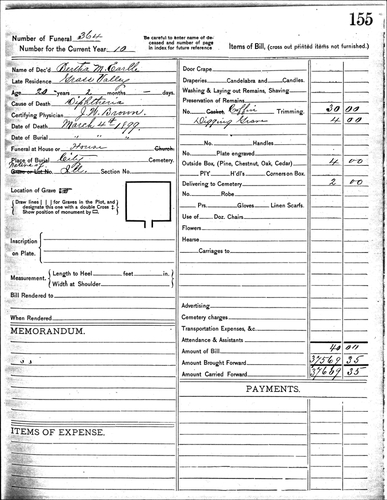 155
Number of Funeral 364
Number for the Current Year 10
Be careful to enter name of deceased and number of page in index for future reference
Items of Bill, (cross out printed items not furnished.)
Name of Dec'd Bertha M.
Late Residence Grass Valley
Age 20 years 2 months - days.
Cause of Death Diphtheria
Certifying Physician J. W. Brown.
Date of Death March 4th 1899.
Date of Burial " " "
Funeral at House or House Church.
Place of Burial City Cemetery.
Grave or Lot No. Section No.
Location of Grave
Draw lines for Graves in the Plot, and
designate this one with a double Cross
Show position of monument by
Inscription
on Plate.
Measurement. Length to Heel feet in.
Width at Shoulder
Bill Rendered to
When Rendered
MEMORANDUM.
ITEMS OF EXPENSE.
Door Crape
Draperies Candelabra and Candles.
Washing & Laying out Remains, Shaving
Preservation of Remains
No. Casket Coffin Trimming. 30 00
Digging Grave 4 00
No. Handles
Plate engraved
Outside Box, (Pine, Chestnut, Oak, Cedar) 4 00
PIY H'd's Corners on Box.
Delivering to Cemetery 2 00
No. Robe
Prs. Gloves Linen Scarfs.
Use of Doz. Chairs
Flowers
Hearse
Carriages to
Advertising
Cemetery charges
Transportation Expenses, &c.
Attendance & Assistants
Amount of Bill 40 00
Amount Brought Forward 37569 35
Amount Carried Forward 37609 35
PAYMENTS.